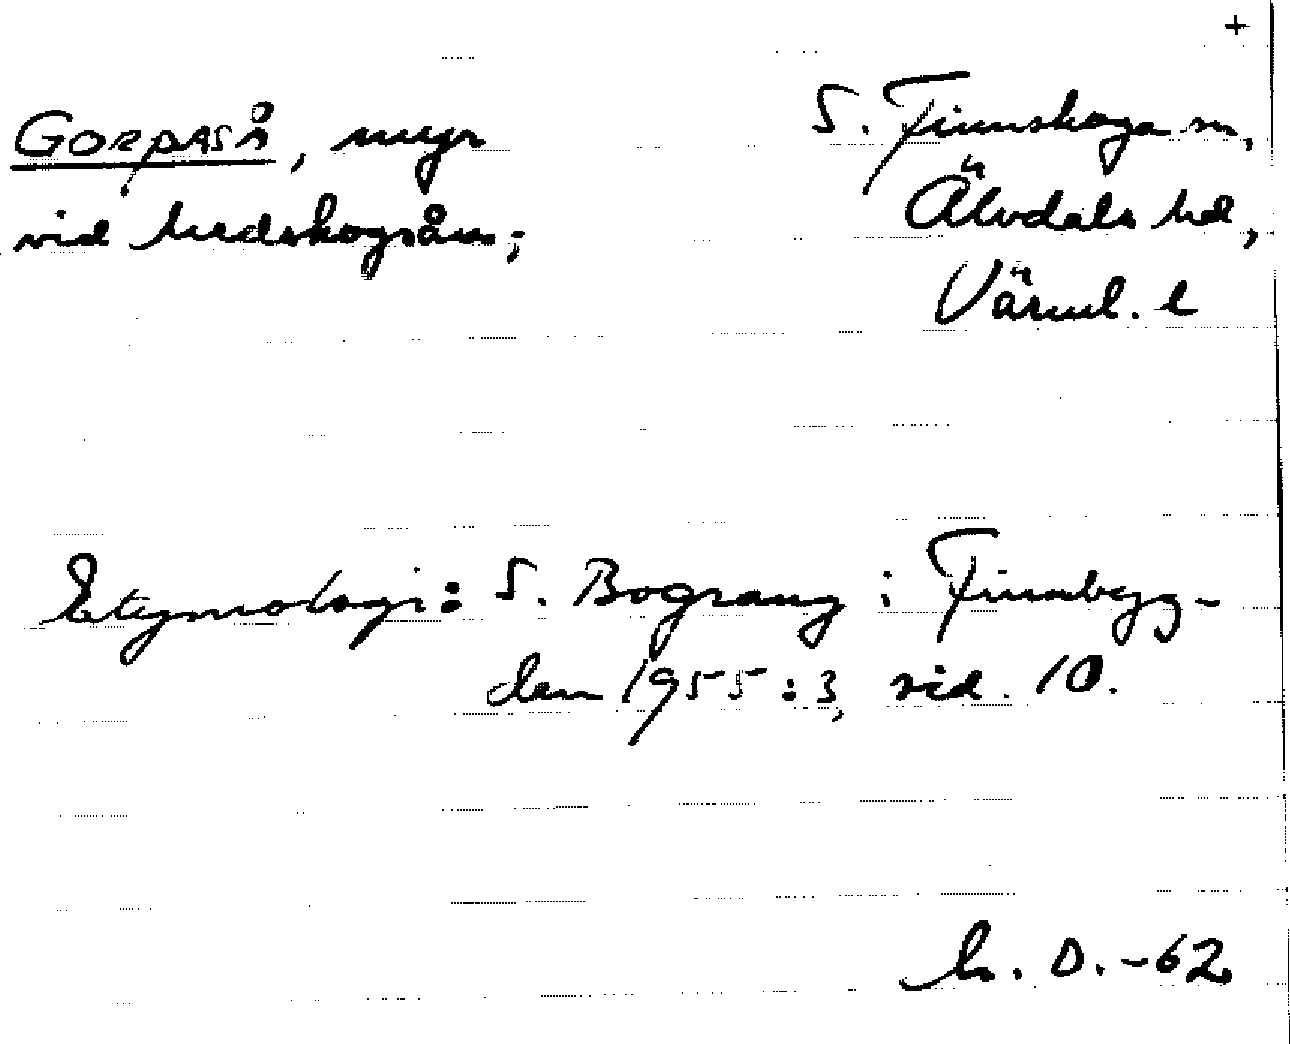 +
GORPASÅ, myr
vid Medskogsån;
S. Finnskoga sn,
Älvdals hd,
Värml. l
Etymologi: S. Bograng i Finnbyg-
den 1955:3, sid. 10.
D. -62